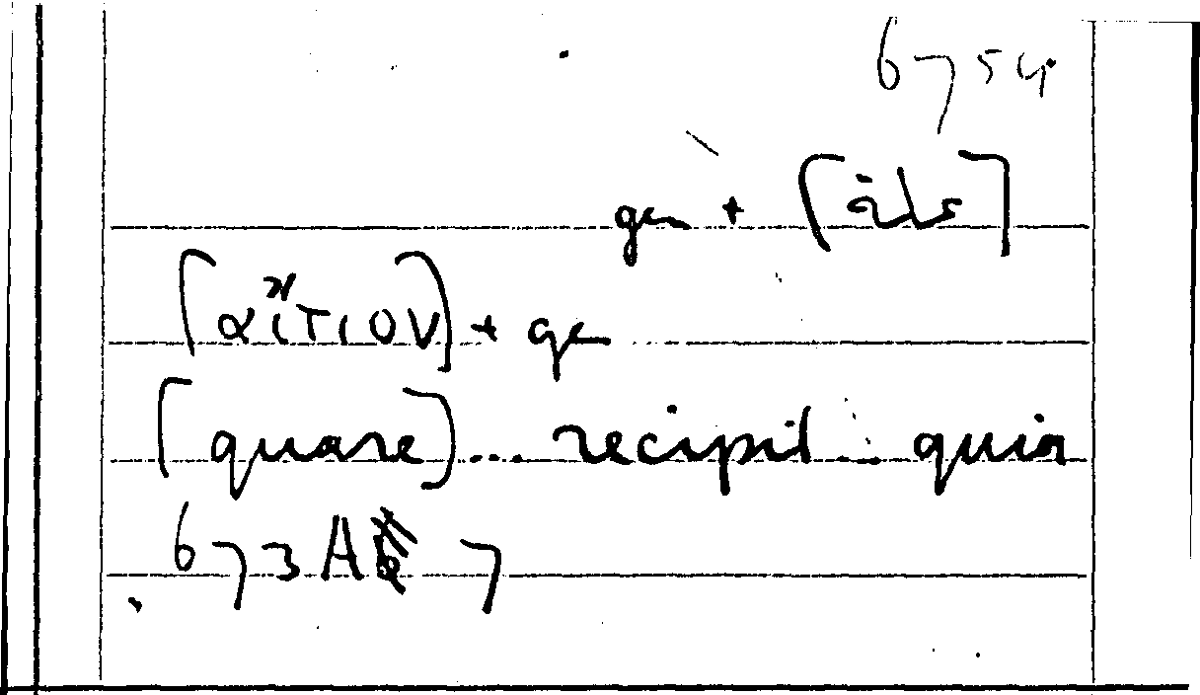 6754
gen + [علة]
[αἴτιον] + gen
[quare] ... recipit ... quia
673A 7